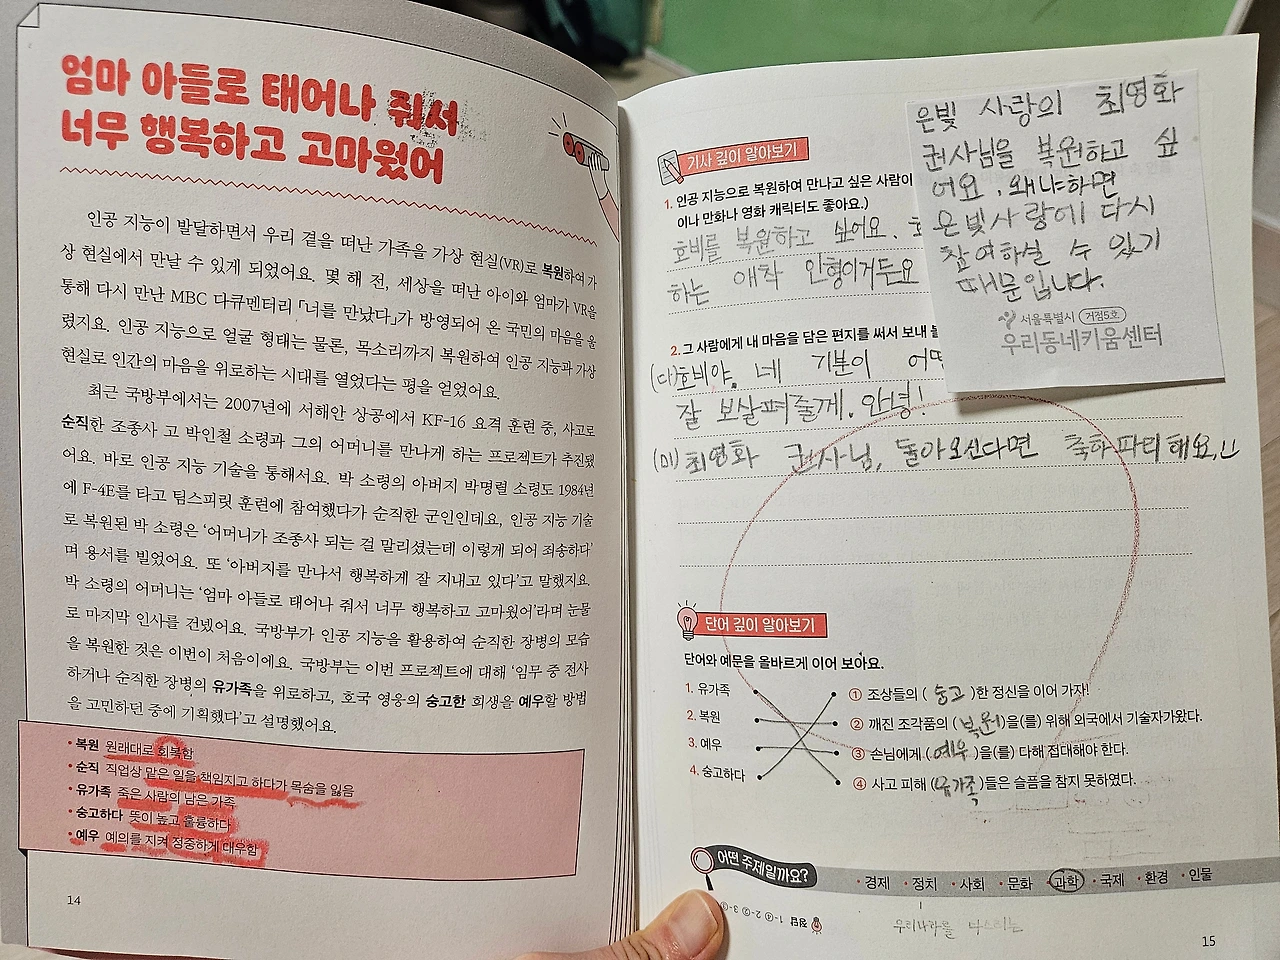 엄마 아들로 태어나 줘서
너무 행복하고 고마웠어
인공 지능이 발달하면서 우리 곁을 떠난 가족을 가상 현실(VR)로 복원하여 가
상 현실에서 만날 수 있게 되었어요. 몇 해 전, 세상을 떠난 아이와 엄마가 VR을
통해 다시 만난 MBC 다큐멘터리 「너를 만났다」가 방영되어 온 국민의 마음을 울
렸지요. 인공 지능으로 얼굴 형태는 물론, 목소리까지 복원하여 인공 지능과 가상
현실로 인간의 마음을 위로하는 시대를 열었다는 평을 얻었어요.
최근 국방부에서는 2007년에 서해안 상공에서 KF-16 요격 훈련 중, 사고로
순직한 조종사 고 박인철 소령과 그의 어머니를 만나게 하는 프로젝트가 추진됐
어요. 바로 인공 지능 기술을 통해서요. 박 소령의 아버지 박명렬 소령도 1984년
에 F-4E를 타고 팀스피릿 훈련에 참여했다가 순직한 군인인데요, 인공 지능 기술
로 복원된 박 소령은 ‘어머니가 조종사 되는 걸 말리셨는데 이렇게 되어 죄송하다’
며 용서를 빌었어요. 또 ‘아버지를 만나서 행복하게 잘 지내고 있다’고 말했지요.
박 소령의 어머니는 ‘엄마 아들로 태어나 줘서 너무 행복하고 고마웠어’라며 눈물
로 마지막 인사를 건넸어요. 국방부가 인공 지능을 활용하여 순직한 장병의 모습
을 복원한 것은 이번이 처음이에요. 국방부는 이번 프로젝트에 대해 ‘임무 중 전사
하거나 순직한 장병의 유가족을 위로하고, 호국 영웅의 숭고한 희생을 예우할 방법
을 고민하던 중에 기획했다’고 설명했어요.
• 복원 원래대로 회복함
• 순직 직업상 맡은 일을 책임지고 하다가 목숨을 잃음
• 유가족 죽은 사람의 남은 가족
• 숭고하다 뜻이 높고 훌륭하다
• 예우 예의를 지켜 정중하게 대우함
14
기사 깊이 알아보기
1. 인공 지능으로 복원하여 만나고 싶은 사람이
이나 만화나 영화 캐릭터도 좋아요.)
호비를 복원하고 싶어요.
하는 애착 인형이거든요
은빛 사랑의 최영화
권사님을 복원하고 싶
어요. 왜냐하면
은빛사랑에 다시
참여하실 수 있기
때문입니다.
서울특별시 거점5호
우리동네키움센터
2. 그 사람에게 내 마음을 담은 편지를 써서 보내
(대)호비야, 네 기분이
잘 보살펴줄게. 안녕!
(미)최영화 권사님, 돌아오신다면 축하파티해요,
단어 깊이 알아보기
단어와 예문을 올바르게 이어 보아요.
1. 유가족
2. 복원
3. 예우
4. 숭고하다
① 조상들의 ( 숭고 )한 정신을 이어 가자!
② 깨진 조각품의 ( 복원 )을(를) 위해 외국에서 기술자가 왔다.
③ 손님에게 ( 예우 )을(를) 다해 접대해야 한다.
④ 사고 피해 (유가족)들은 슬픔을 참지 못하였다.
어떤 주제일까요?
• 경제 • 정치 • 사회 • 문화 • 과학 • 국제 • 환경 • 인물
정답 1-④ 2-② 3-③
우리나라를 다스리는
15